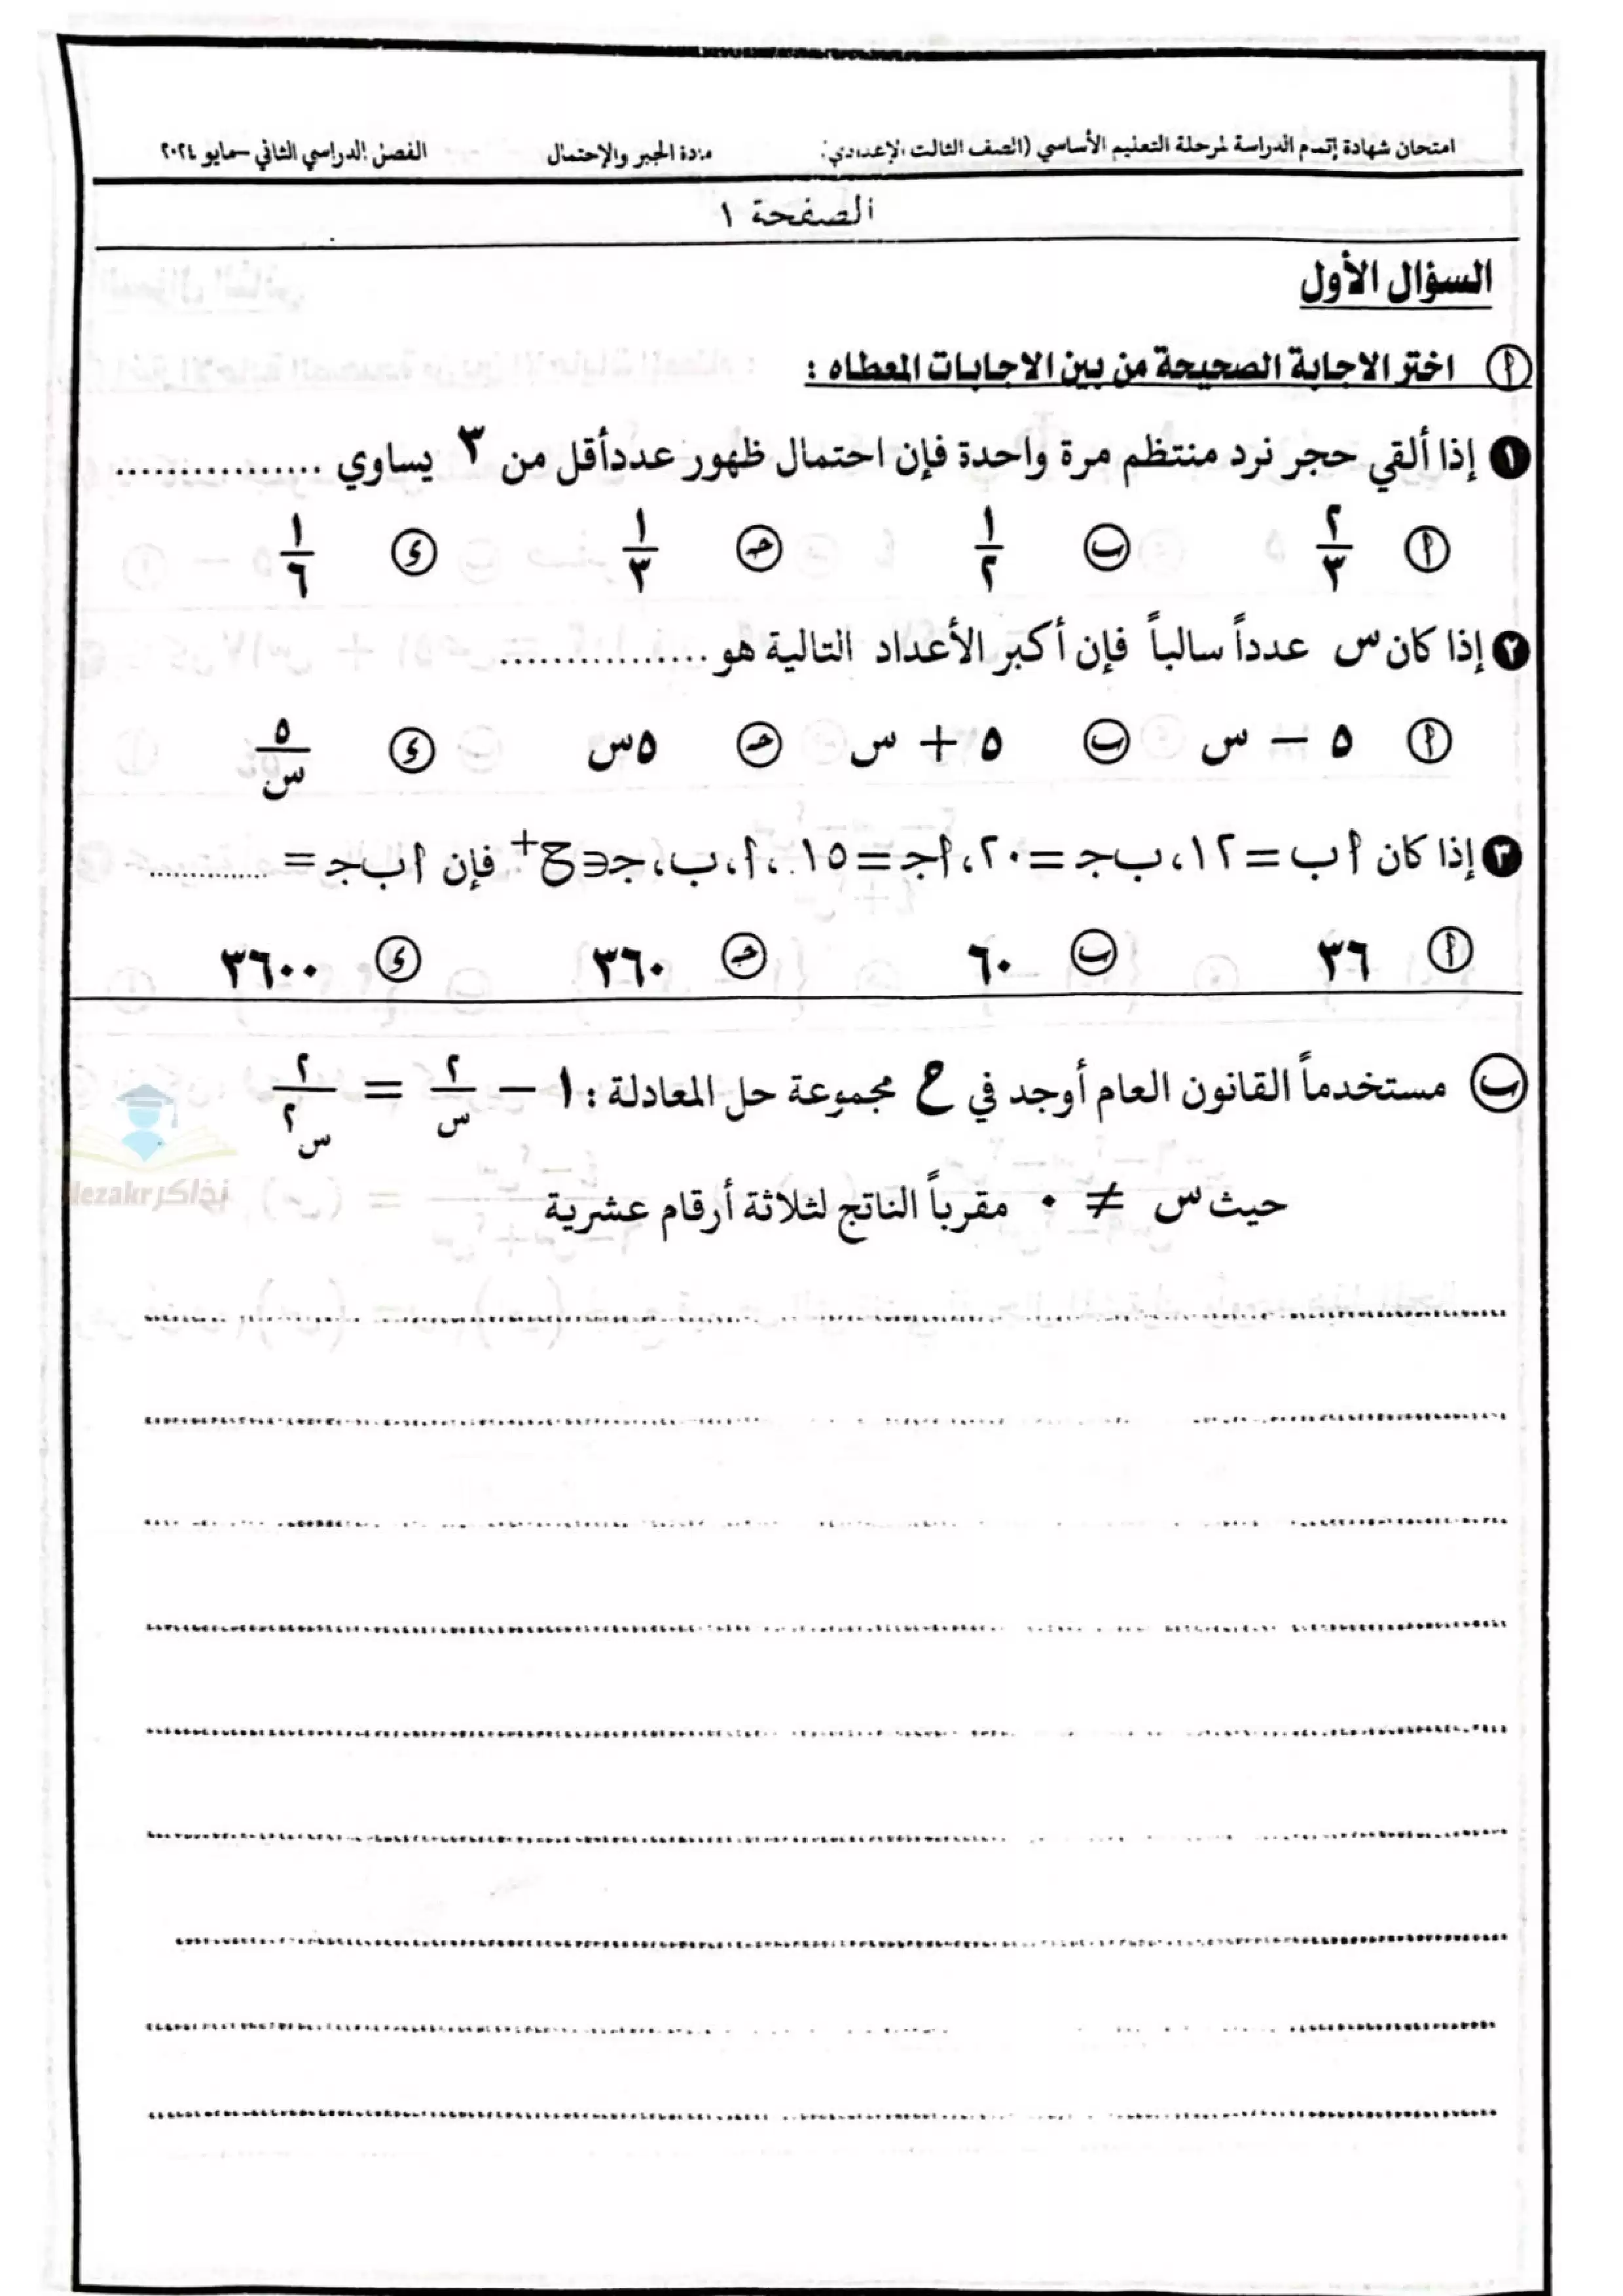 امتحان شهادة إتمام الدراسة لمرحلة التعليم الأساسي (الصف الثالث الإعدادي) مادة الجبر والإحتمال الفصل الدراسي الثاني – مايو ٢٠٢٤
الصفحة ١
السؤال الأول
أ اختر الاجابة الصحيحة من بين الاجابات المعطاه :
١ إذا ألقي حجر نرد منتظم مرة واحدة فإن احتمال ظهور عدد أقل من ٣ يساوي ................
أ ٢/٣ ب ١/٢ جـ ١/٣ د ١/٦
٢ إذا كان س عدداً سالباً فإن أكبر الأعداد التالية هو ................
أ ٥ – س ب ٥ + س جـ ٥س د ٥/س
٣ إذا كان أ ب = ١٢، ب جـ = ٢٠، أ جـ = ١٥، أ، ب، جـ ∈ ح⁺ فإن أ ب جـ = ..............
أ ٣٦ ب ٦٠ جـ ٣٦٠ د ٣٦٠٠
ب مستخدماً القانون العام أوجد في ح مجموعة حل المعادلة : ١ – ٢/س = ٢/س٢
حيث س ≠ ٠ مقرباً الناتج لثلاثة أرقام عشرية
نذاكر dezakr